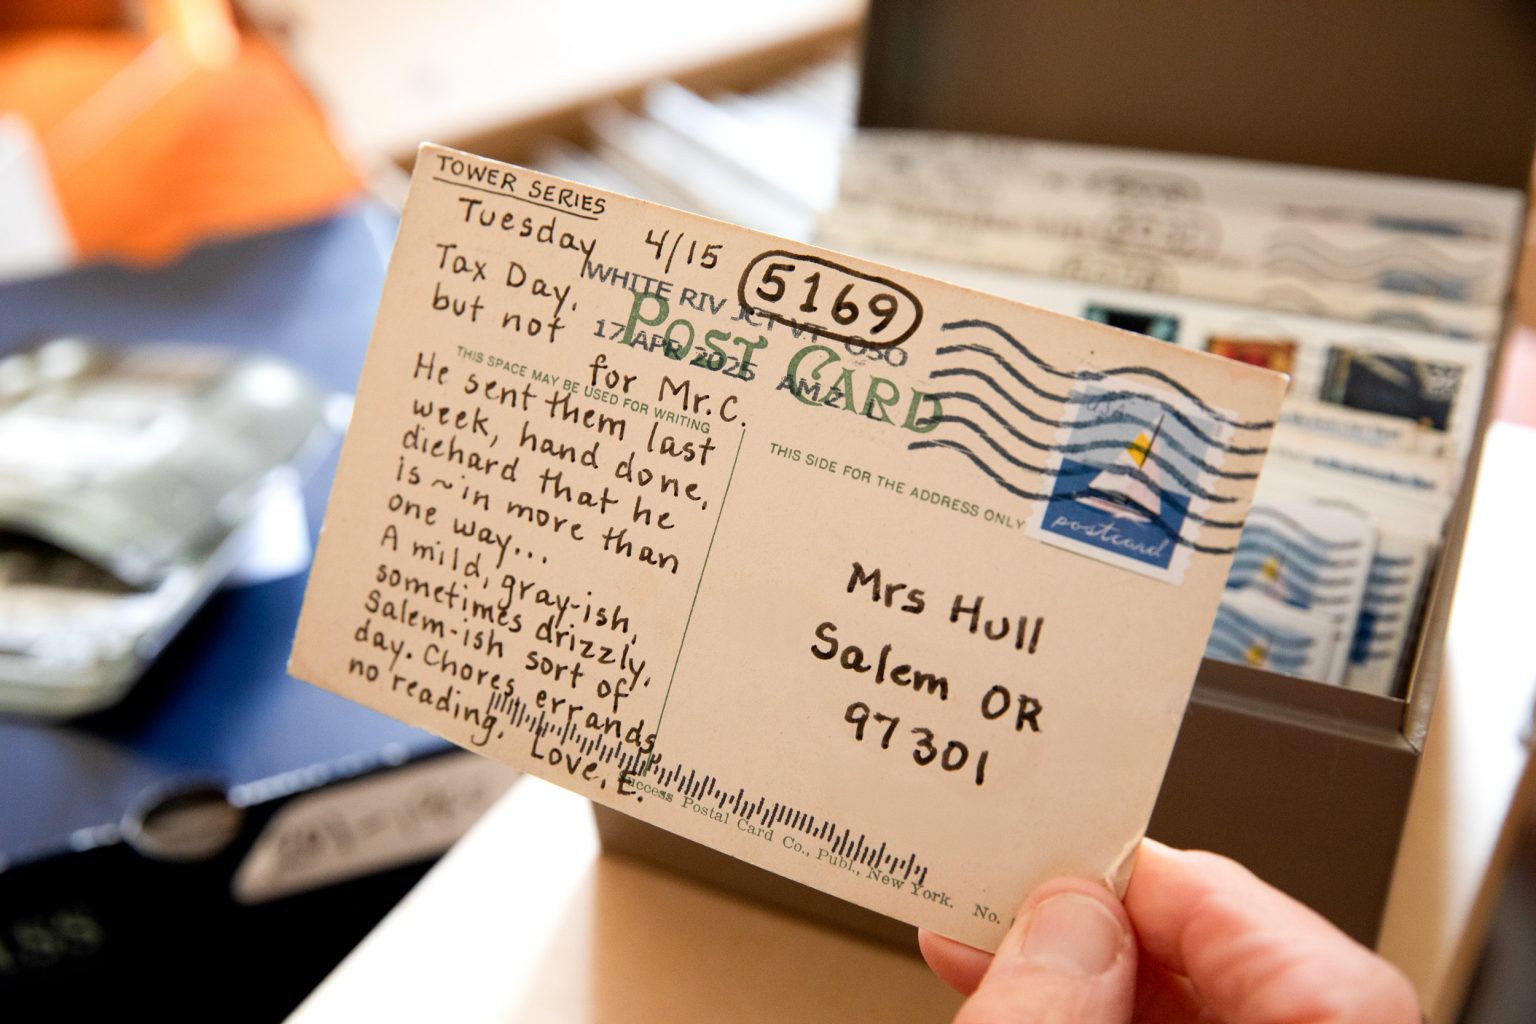 TOWER SERIES
Tuesday 4/15
5169
Tax Day,
but not
for Mr. C.
He sent them last
week, hand done,
diehard that he
is ~ in more than
one way...
A mild, gray-ish,
sometimes drizzly,
Salem-ish sort of
day. Chores, errands,
no reading. Love, E.
WHITE RIV JCT VT 050
17 APR 2025 AM 2 L
POST CARD
THIS SPACE MAY BE USED FOR WRITING
THIS SIDE FOR THE ADDRESS ONLY
postcard
Mrs Hull
Salem OR
97301
Success Postal Card Co., Publ., New York. No.